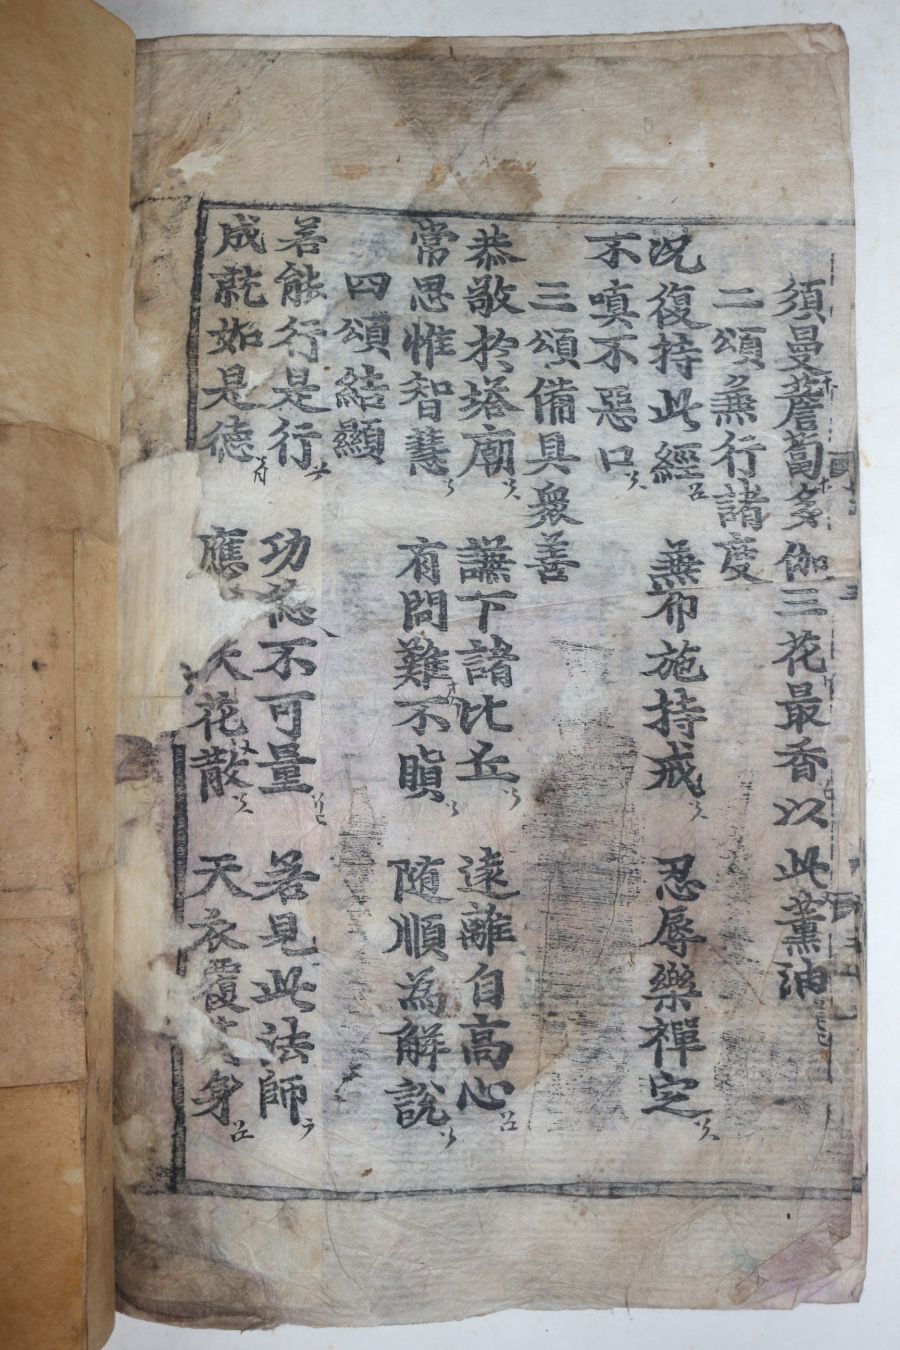 須曼薝蔔多伽三花最香以此薰油
二頌兼行諸度
况復持此經 兼布施持戒 忍辱樂禪定
不嗔不惡口
三頌備具衆善
恭敬於塔廟 謙下諸比丘 遠離自高心
常思惟智慧 有問難不瞋 随順為解說
四頌結顯
若能行是行 功德不可量 若見此法師
成就如是德 應 天花散 天衣覆其身